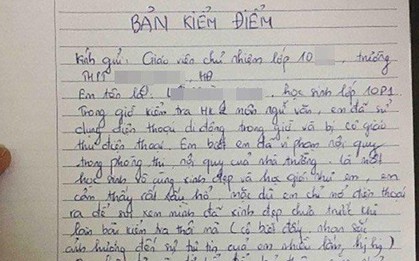 BẢN KIỂM ĐIỂM
Kính gửi: Giáo viên chủ nhiệm lớp 10 , trường
THPT , HN
Em tên là: , học sinh lớp 10P1
Trong giờ kiểm tra HK 2 môn ngữ văn, em đã sử
dụng điện thoại di động trong giờ và bị cô giáo
thu điện thoại. Em biết em đã vi phạm nội quy
trong phòng thi nội quy của nhà trường. Là một
học sinh vô cùng xinh đẹp và học giỏi như em, em
cảm thấy rất xấu hổ. mặc dù em chỉ mở điện thoại
ra để soi xem mình đã xinh đẹp chưa trước khi
làm bài kiểm tra thôi mà (cô biết đấy, nhan sắc
ảnh hưởng đến sự tự tin của em nhiều lắm, hị hị)